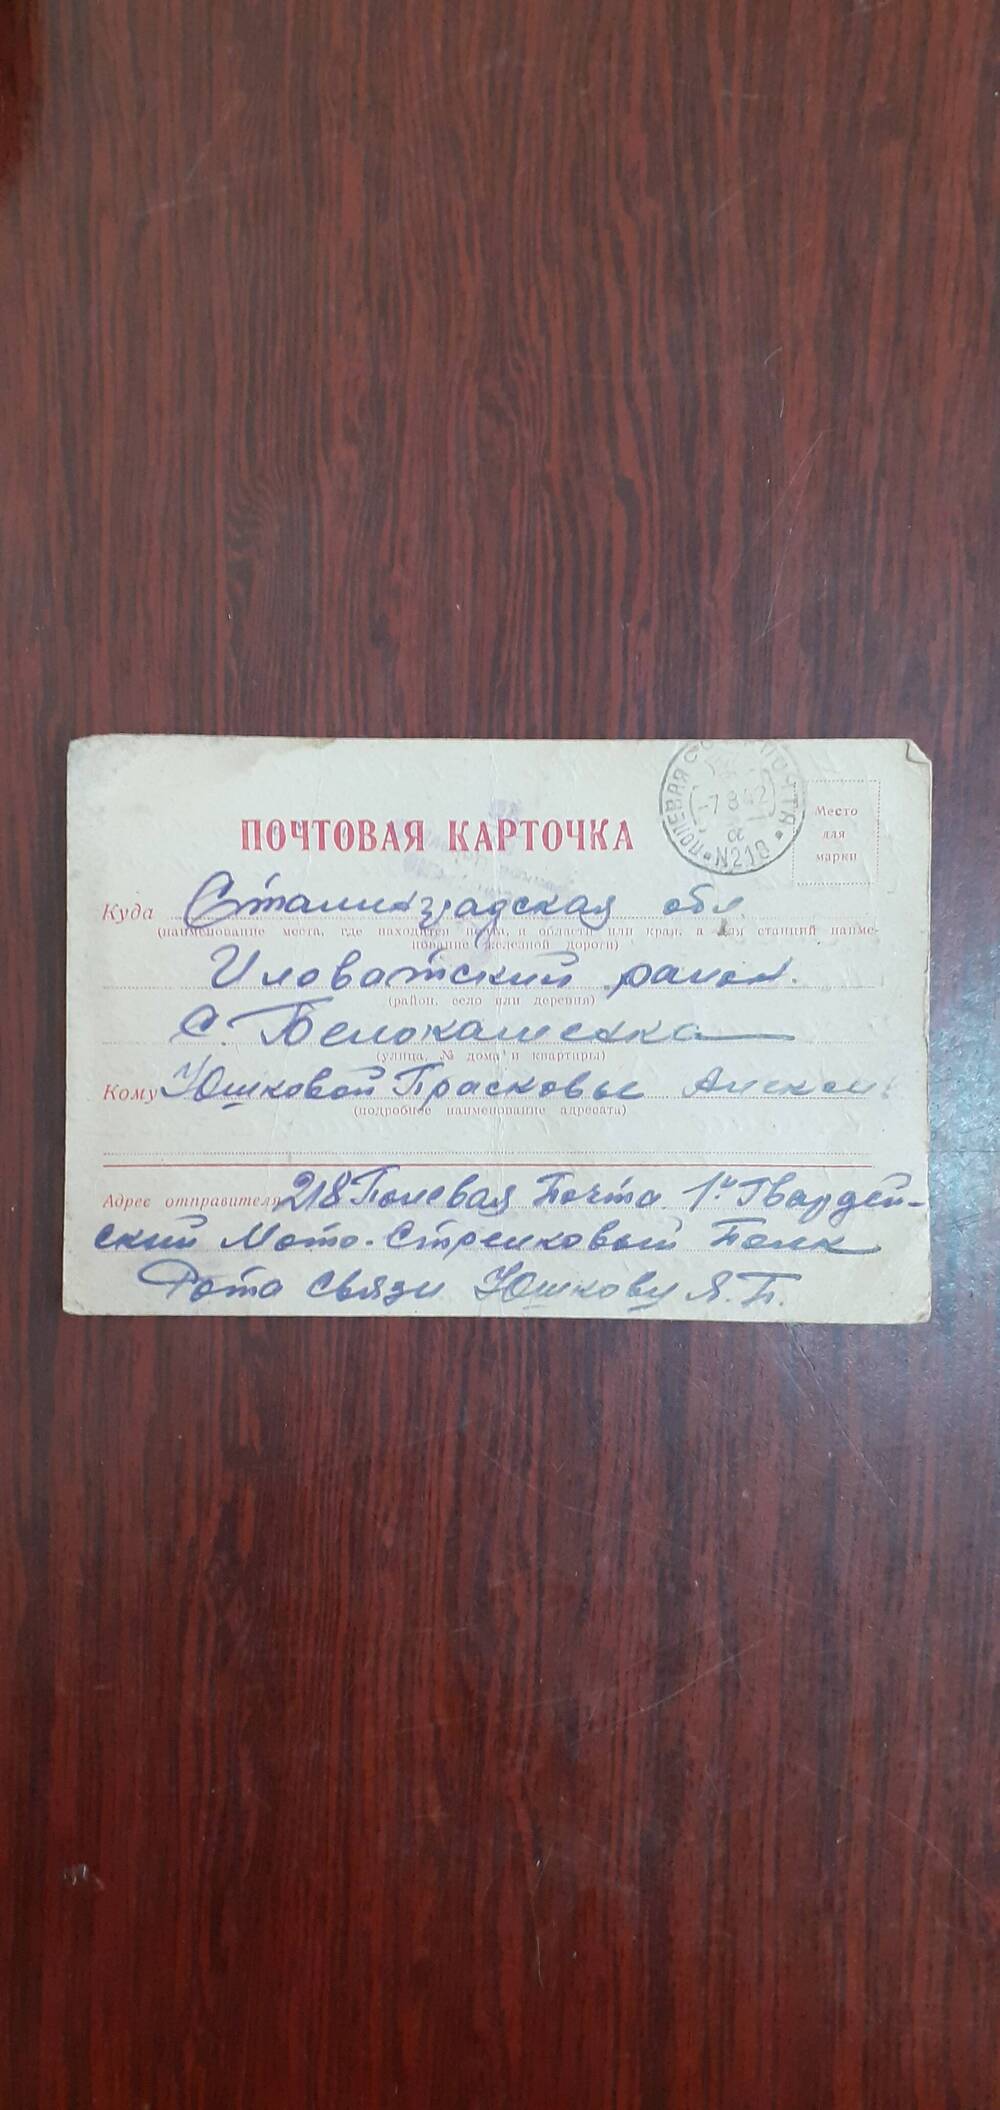 ПОЛЕВАЯ ПОЧТА
-7 8 42
N210
Место
для
марки
ПОЧТОВАЯ КАРТОЧКА
Куда Сталинградская обл.
(наименование места, где находится почта, и области или края, а для станций наиме-
нование железной дороги)
Иловатский район.
(район, село или деревня)
С. Белокаменка
(улица, № дома и квартиры)
Кому Юшковой Прасковье Алексан.
(подробное наименование адресата)
Адрес отправителя 218 Полевая Почта 1й Гвардей-
ский Мото-Стрелковый Полк
Рота Связи Юшкову Я. П.